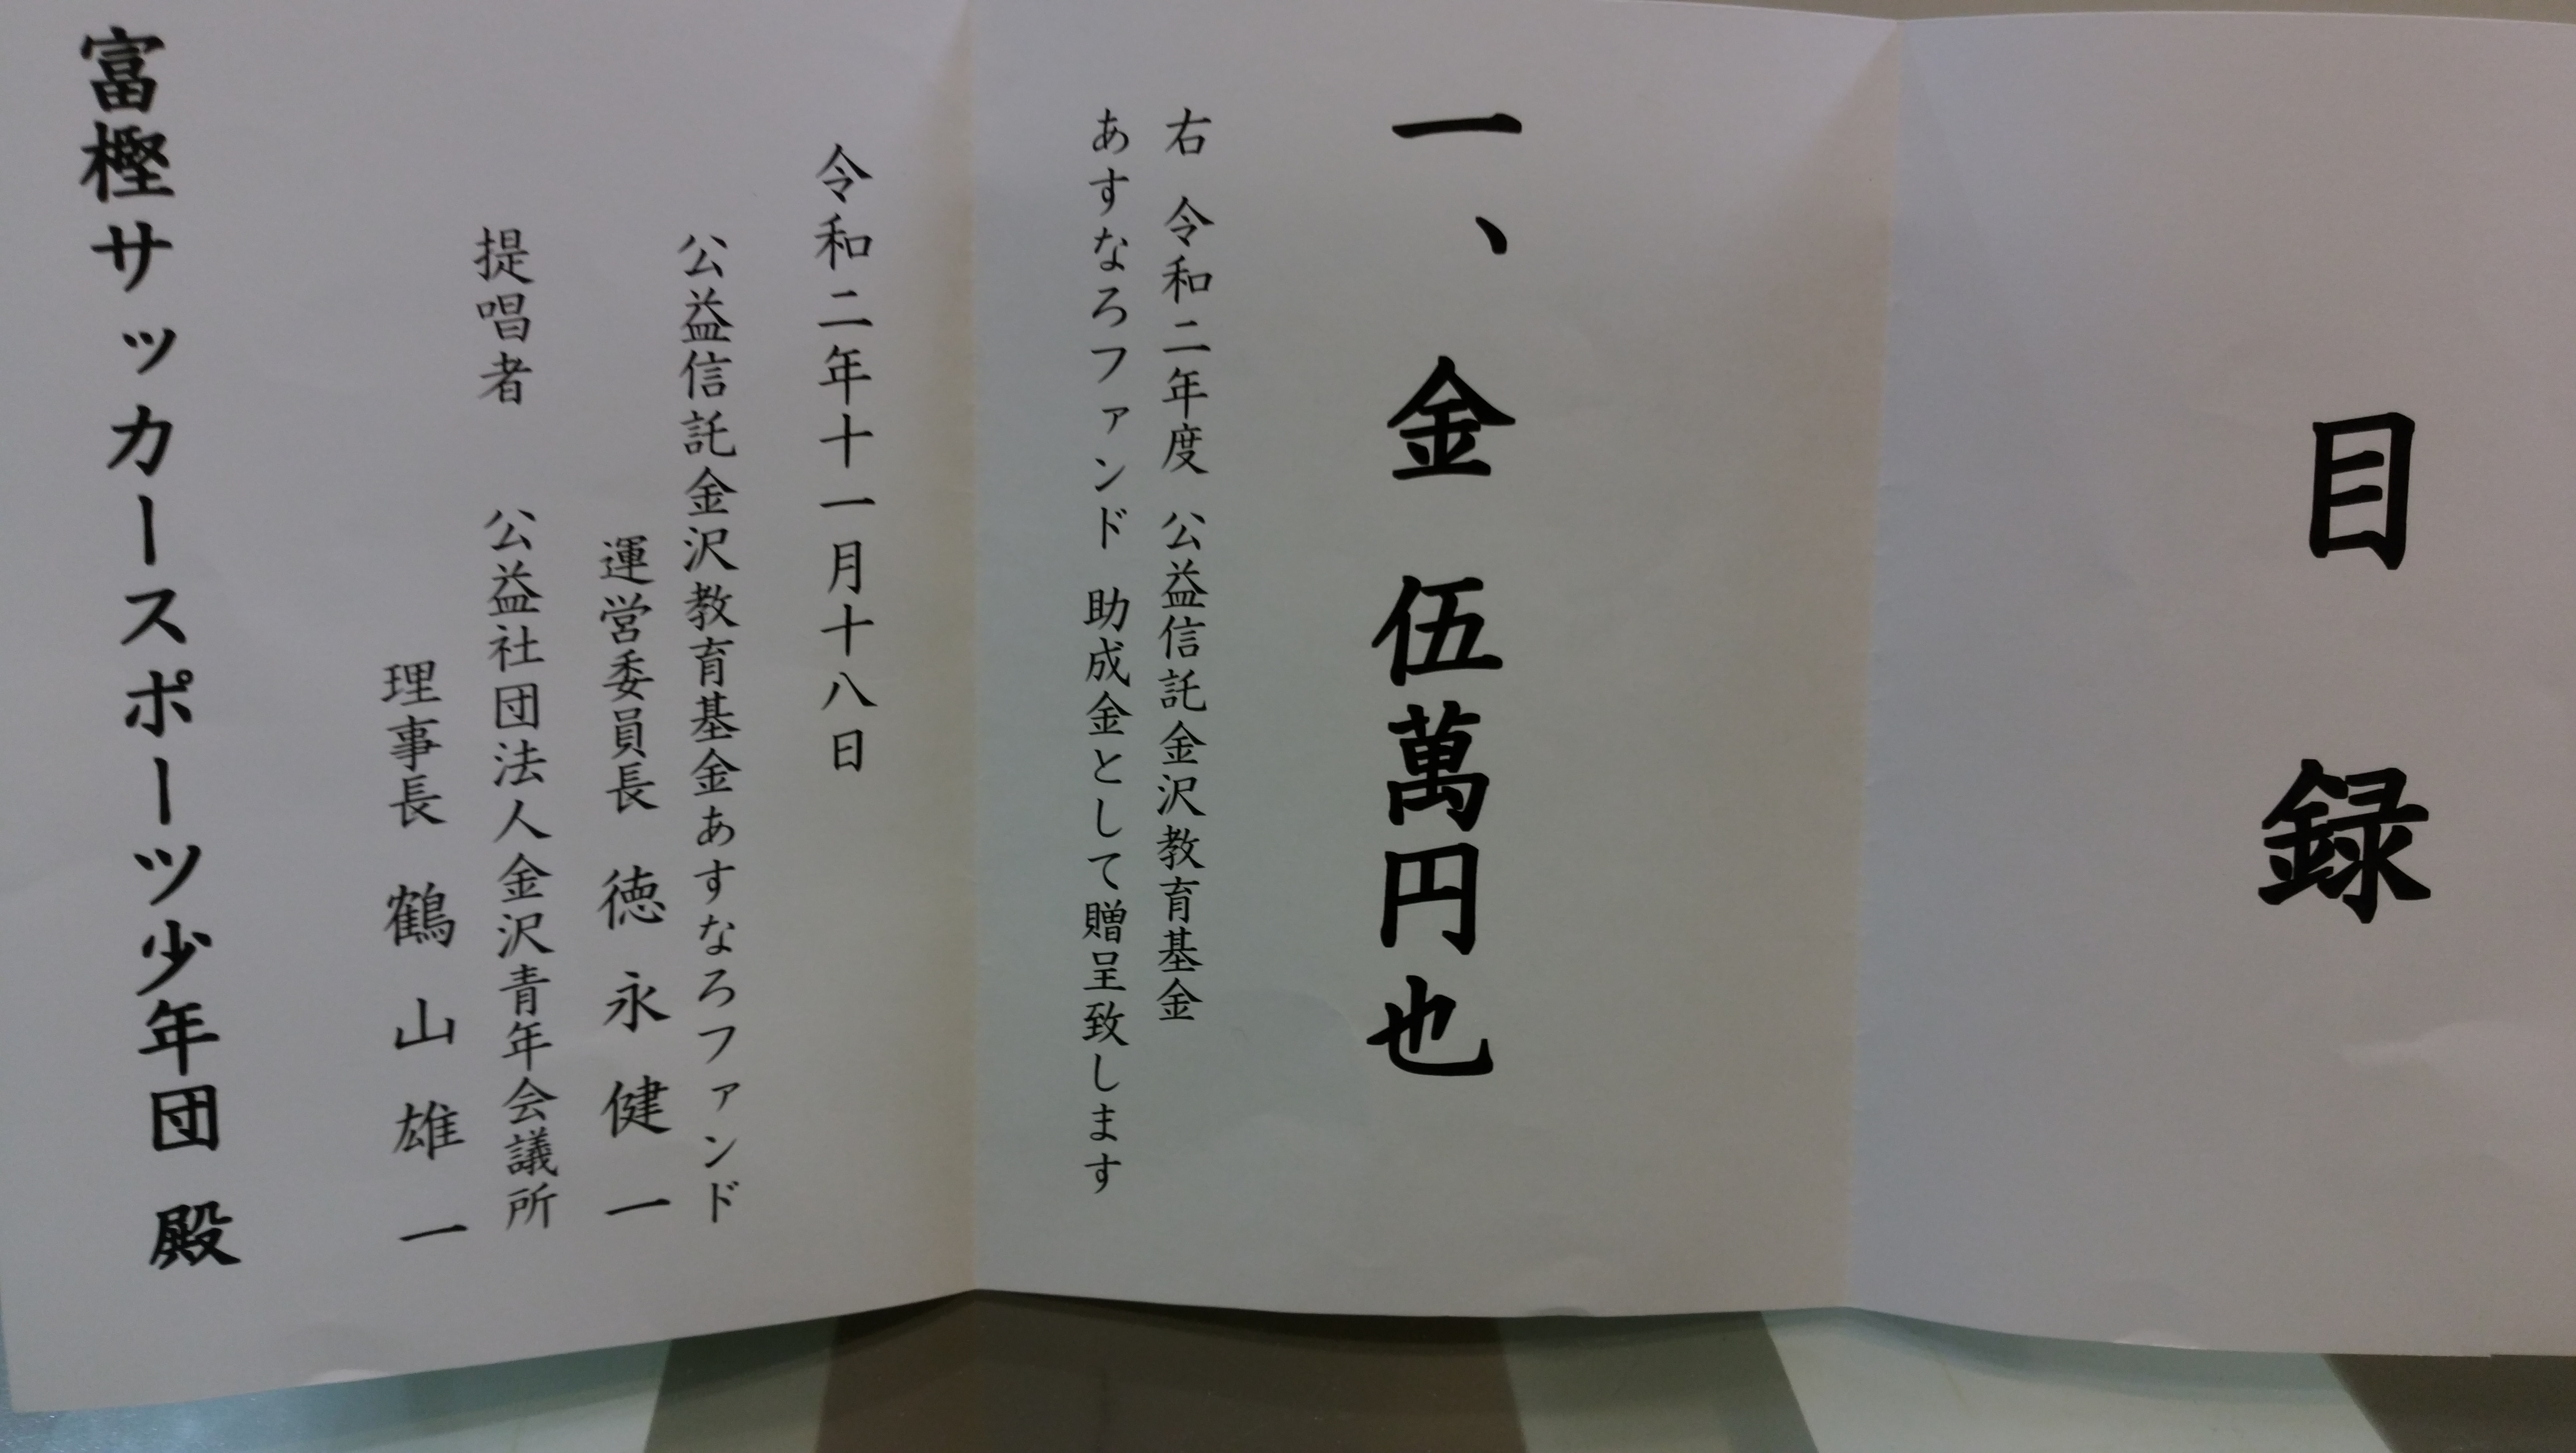 目録
一、金 伍萬円也
右 令和二年度 公益信託金沢教育基金
あすなろファンド 助成金として贈呈致します
令和二年十一月十八日
公益信託金沢教育基金あすなろファンド
運営委員長 徳永健一
提唱者 公益社団法人金沢青年会議所
理事長 鶴山雄一
富樫サッカースポーツ少年団 殿